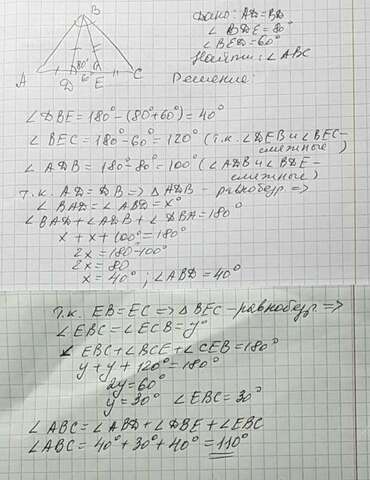 B
Дано: AD=BD
∠ BDE = 80°
∠ BED = 60°
Найти: ∠ ABC
Решение:
80° 60°
A D E C
∠ DBE = 180° - (80°+60°) = 40°
∠ BEC = 180° - 60° = 120° (т.к. ∠DEB и ∠BEC - смежные)
∠ ADB = 180° - 80° = 100° (∠ADB и ∠BDE - смежные)
т.к. AD = DB => △ ADB - равнобедр. =>
∠ BAD = ∠ ABD = x°
∠ BAD + ∠ ADB + ∠ DBA = 180°
x + x + 100° = 180°
2x = 180° - 100°
2x = 80
x = 40° ; ∠ABD = 40°
т.к. EB = EC => △ BEC - равнобедр. =>
∠ EBC = ∠ ECB = y°
∠ EBC + ∠ BCE + ∠ CEB = 180°
y + y + 120° = 180°
2y = 60°
y = 30° ∠ EBC = 30°
∠ ABC = ∠ ABD + ∠ DBE + ∠ EBC
∠ ABC = 40° + 30° + 40° = 110°